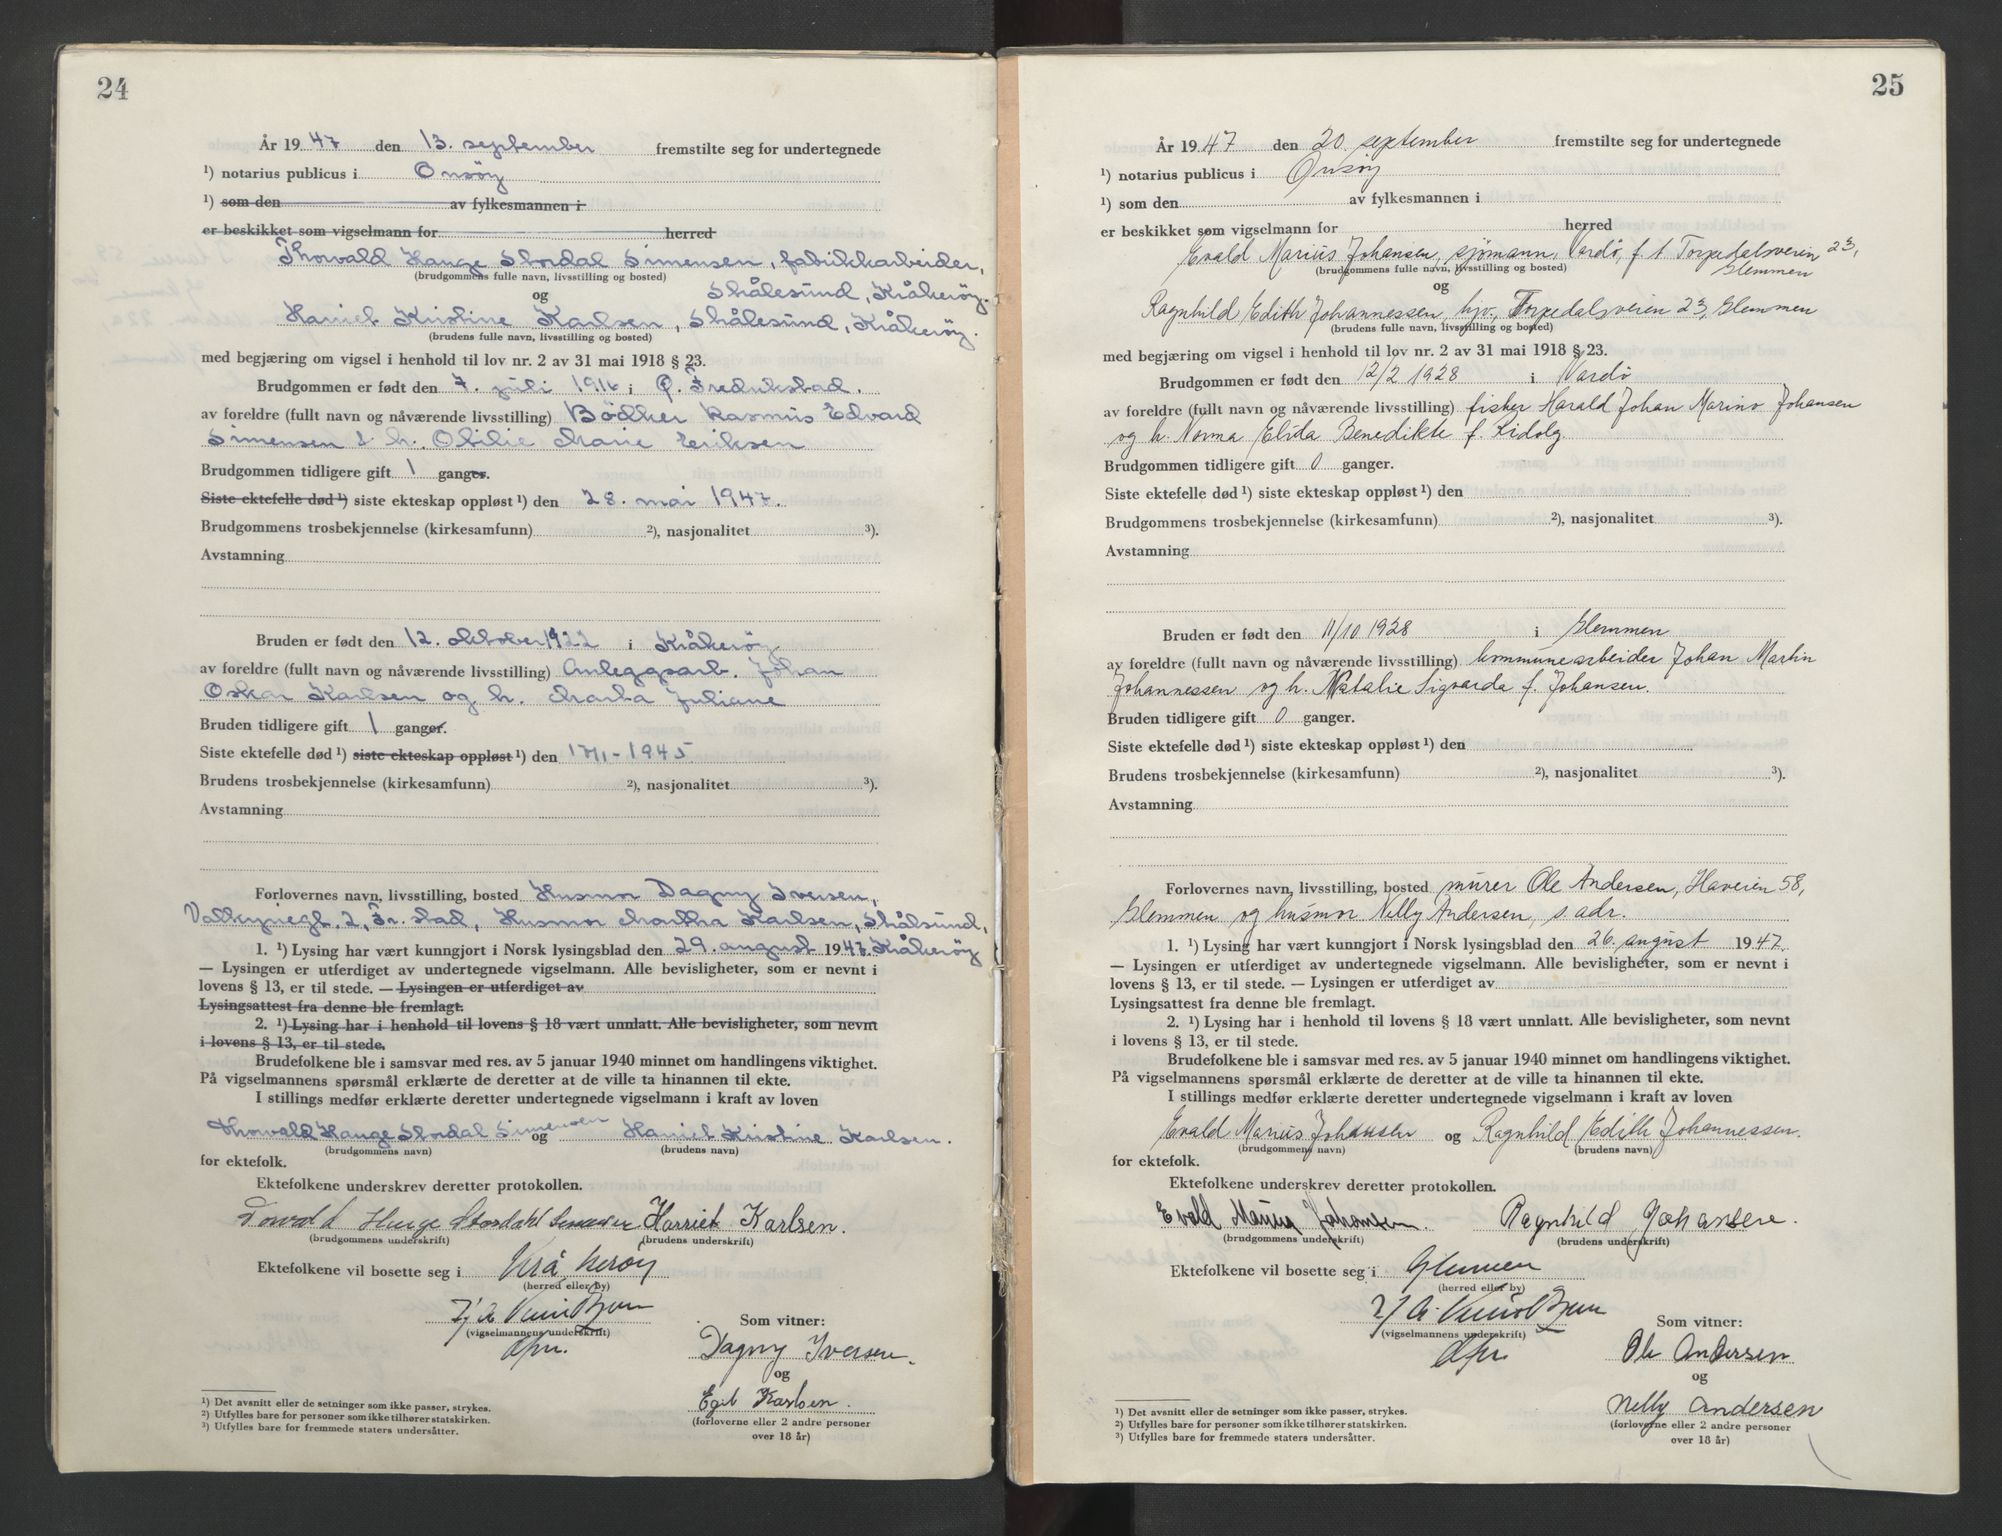 24
År 1947 den 13. september fremstilte seg for undertegnede
¹) notarius publicus i Onsöy
¹) som den av fylkesmannen i
er beskikket som vigselmann for herred
Thorvald Hauge Stordal Simensen, fabrikkarbeider,
(brudgommens fulle navn, livsstilling og bosted)
og Skålesund, Kråkeröy.
Harriet Kristine Karlsen, Skålesund, Kråkeröy.
(brudens fulle navn, livsstilling og bosted)
med begjæring om vigsel i henhold til lov nr. 2 av 31 mai 1918 § 23.
Brudgommen er født den 7. juli 1916 i Ö. Fredrikstad.
av foreldre (fullt navn og nåværende livsstilling) Bödker Rasmus Edvard
Simensen & h. Otilie Marie Eriksen
Brudgommen tidligere gift 1 ganger.
Siste ektefelle død ¹) siste ekteskap oppløst ¹) den 28. mai 1947.
Brudgommens trosbekjennelse (kirkesamfunn) ²), nasjonalitet ³).
Avstamning
Bruden er født den 12. oktober 1922 i Kråkeröy
av foreldre (fullt navn og nåværende livsstilling) Anleggsarb. Johan
Oskar Karlsen og h. Marta Juliane
Bruden tidligere gift 1 ganger.
Siste ektefelle død ¹) siste ekteskap oppløst ¹) den 17/1-1945
Brudens trosbekjennelse (kirkesamfunn) ²), nasjonalitet ³).
Avstamning
Forlovernes navn, livsstilling, bosted Husmor Dagny Iversen,
Valkyriegt. 2, Fr.stad, Husmor Martha Karlsen, Skålsund,
1. ¹) Lysing har vært kunngjort i Norsk lysingsblad den 29. august 1947. Kråkeröy
— Lysingen er utferdiget av undertegnede vigselmann. Alle bevisligheter, som er nevnt i
lovens § 13, er til stede. — Lysingen er utferdiget av
Lysingsattest fra denne ble fremlagt.
2. ¹) Lysing har i henhold til lovens § 18 vært unnlatt. Alle bevisligheter, som nevnt
i lovens § 13, er til stede.
Brudefolkene ble i samsvar med res. av 5 januar 1940 minnet om handlingens viktighet.
På vigselmannens spørsmål erklærte de deretter at de ville ta hinannen til ekte.
I stillings medfør erklærte deretter undertegnede vigselmann i kraft av loven
Thorvald Hauge Stordal Simensen og Harriet Kristine Karlsen.
(brudgommens navn) (brudens navn)
for ektefolk.
Ektefolkene underskrev deretter protokollen.
Torvald Hauge Stordahl Simensen Harriet Karlsen.
(brudgommens underskrift) (brudens underskrift)
Ektefolkene vil bosette seg i Kråkerøy
(herred eller by)
(vigselmannens underskrift) Som vitner:
Dagny Iversen.
og
Egil Karlsen.
(forloverne eller 2 andre personer
over 18 år)
¹) Det avsnitt eller de setninger som ikke passer, strykes.
²) Utfylles bare for personer som ikke tilhører statskirken.
³) Utfylles bare for fremmede staters undersåtter.
25
År 1947 den 20. september fremstilte seg for undertegnede
¹) notarius publicus i Onsöy
¹) som den av fylkesmannen i
er beskikket som vigselmann for herred
Evald Marius Johansen, sjömann, Vardö, f. t. Torpedalsveien 23,
(brudgommens fulle navn, livsstilling og bosted) Glemmen
og
Ragnhild Edith Johannessen, hjv., Torpedalsveien 23, Glemmen
(brudens fulle navn, livsstilling og bosted)
med begjæring om vigsel i henhold til lov nr. 2 av 31 mai 1918 § 23.
Brudgommen er født den 12/2 1928 i Vardö
av foreldre (fullt navn og nåværende livsstilling) fisker Harald Johan Marino Johansen
og h. Norma Elida Benedikte f.
Brudgommen tidligere gift 0 ganger.
Siste ektefelle død ¹) siste ekteskap oppløst ¹) den
Brudgommens trosbekjennelse (kirkesamfunn) ²), nasjonalitet ³).
Avstamning
Bruden er født den 11/10 1928 i Glemmen
av foreldre (fullt navn og nåværende livsstilling) kommunearbeider Johan Martin
Johannessen og h. Natalie Sigvarda f. Johansen.
Bruden tidligere gift 0 ganger.
Siste ektefelle død ¹) siste ekteskap oppløst ¹) den
Brudens trosbekjennelse (kirkesamfunn) ²), nasjonalitet ³).
Avstamning
Forlovernes navn, livsstilling, bosted murer Ole Andersen, Haveien 58,
Glemmen og husmor Nelly Andersen, s. adr.
1. ¹) Lysing har vært kunngjort i Norsk lysingsblad den 26. august 1947.
— Lysingen er utferdiget av undertegnede vigselmann. Alle bevisligheter, som er nevnt i
lovens § 13, er til stede. — Lysingen er utferdiget av
Lysingsattest fra denne ble fremlagt.
2. ¹) Lysing har i henhold til lovens § 18 vært unnlatt. Alle bevisligheter, som nevnt
i lovens § 13, er til stede.
Brudefolkene ble i samsvar med res. av 5 januar 1940 minnet om handlingens viktighet.
På vigselmannens spørsmål erklærte de deretter at de ville ta hinannen til ekte.
I stillings medfør erklærte deretter undertegnede vigselmann i kraft av loven
Evald Marius Johansen og Ragnhild Edith Johannessen.
(brudgommens navn) (brudens navn)
for ektefolk.
Ektefolkene underskrev deretter protokollen.
Evald Marius Johansen. Ragnhild Johansen.
(brudgommens underskrift) (brudens underskrift)
Ektefolkene vil bosette seg i Glemmen
(herred eller by)
(vigselmannens underskrift) Som vitner:
Ole Andersen
og
Nelly Andersen
(forloverne eller 2 andre personer
over 18 år)
¹) Det avsnitt eller de setninger som ikke passer, strykes.
²) Utfylles bare for personer som ikke tilhører statskirken.
³) Utfylles bare for fremmede staters undersåtter.